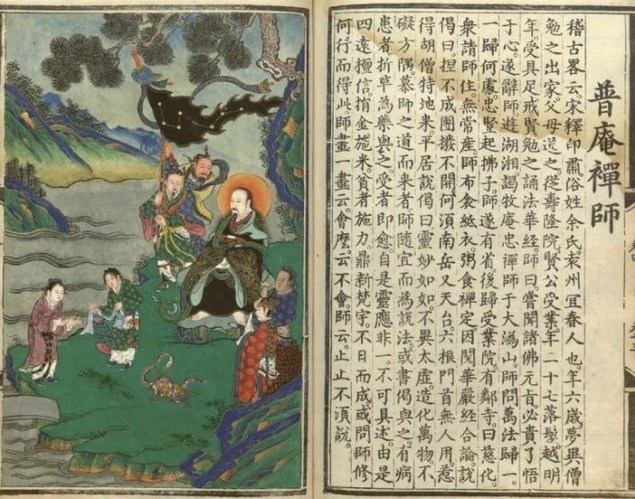 普庵禪師
稽古畧云宋釋印肅俗姓余氏袁州宜春人也年六歲夢異僧
勉之出家父母送之從壽隆院賢公受業年二十七落髮越明
年受具足戒賢勉之誦法華經師曰嘗聞諸佛元旨必貴了悟
于心遂辭師遊湖湘謁牧庵忠禪師于大溈山師問萬法歸一
一歸何處忠豎起拂子師遂有省後歸受業院有鄰寺曰慈化
衆請師住無常産師布衾紙衣粥食禪定因閱華嚴經合論說
偈曰揑不成團撥不開何須南岳又天台六根門首無人用惹
得胡僧特地来平居說偈曰靈妙如如不異太虛造化萬物不
礙方隅慕師之道而来者師隨宜而為說法或書偈與之有病
患者折草為藥與之受者即愈自是靈應非一不可具述由是
四遠檀信捐金施米貧者施力鼎新梵宇不日而成或問師修
何行而得此師畫一畫云會麽云不會師云止止不須說